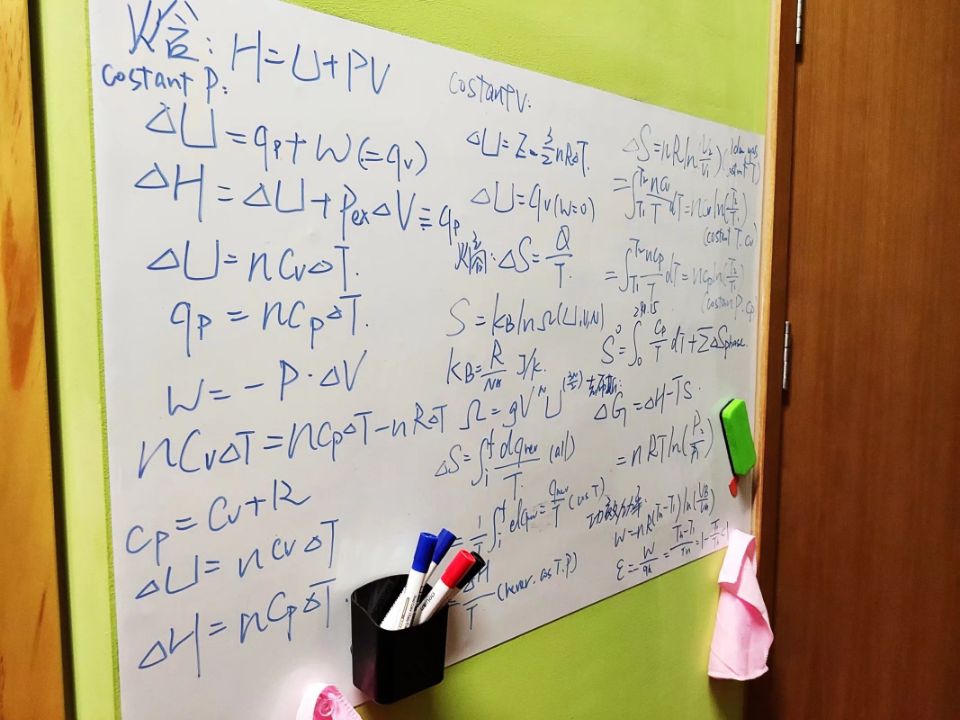 焓: H=U+PV
costant P:
ΔU=qp+W(=qv)
ΔH=ΔU+PexΔV=qp
ΔU=nCvΔT.
qp=nCpΔT.
W=-P·ΔV
nCvΔT=nCpΔT-nRΔT
Cp=Cv+R
ΔU=nCvΔT
ΔH=nCpΔT.
costant V:
ΔU=3/2nRΔT.
ΔU=qv(W=0)
熵:ΔS=Q/T.
S=kBlnΩ(U,V,N)
kB=R/NA J/k.
Ω=gV^N U
ΔS=∫i^f dqrev/T (all)
=1/T∫i^f dqrev=qrev/T (cosT)
=ΔH/T (rever. cosT.P)
ΔS=nRln(V2/V1)
=∫T1^T2 nCv/T dT=nCvln(T2/T1)
(costant T.Cv)
=∫T1^T2 nCp/T dT=nCpln(T2/T1)
(costan P.Cp
S°=∫0 Cp/T dT+ΣΔSphase.
ΔG=ΔH-TS
=nRTln(P2/P1)
W=nR(Th-Tl)ln(VB/VA)
ε=W/qh=Th-Tl/Th=1-